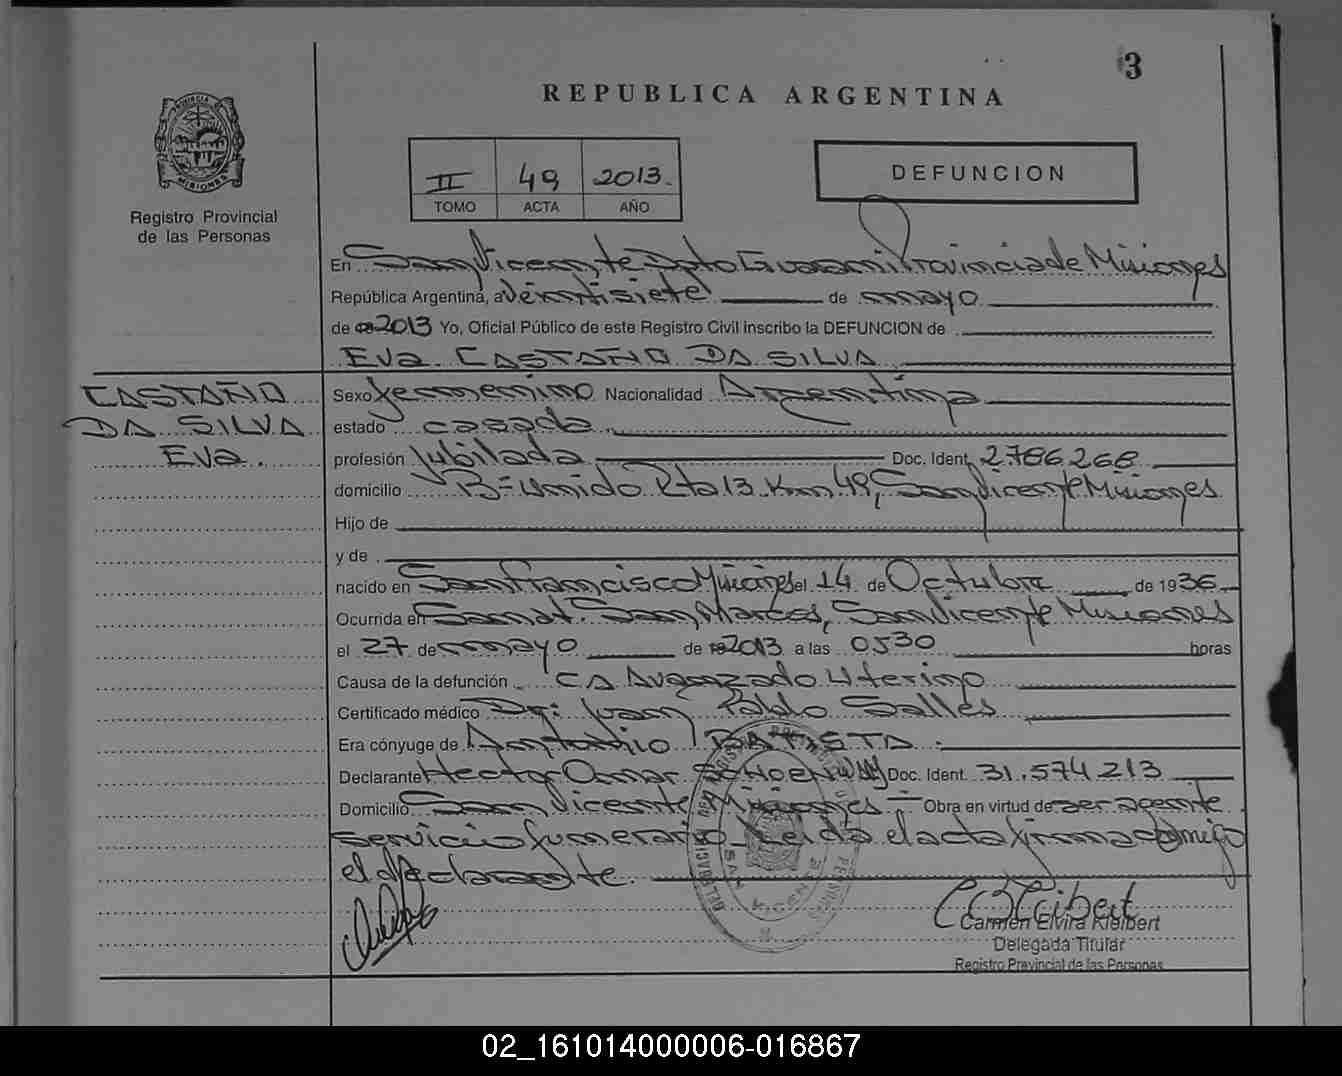 3
REPUBLICA ARGENTINA
PROVINCIA DE
MISIONES
Registro Provincial
de las Personas
II 49 2013.
TOMO ACTA AÑO
DEFUNCION
En San Vicente Dpto Guarani Provincia de Misiones
República Argentina, a veintisiete de mayo
de 2013 Yo, Oficial Público de este Registro Civil inscribo la DEFUNCION de
Eva CASTAÑO DA SILVA
CASTAÑO
DA SILVA
Eva.
Sexo femenino Nacionalidad Argentina
estado casada
profesión Jubilada Doc. Ident. 2.786.268
domicilio B= Unido Rta 13 Km 49, San Vicente Misiones
Hijo de
y de
nacido en San Francisco Misiones el 14 de Octubre de 1936
Ocurrida en Sanat. San Marcos, San Vicente Misiones
el 27 de mayo de 2013 a las 0530 horas
Causa de la defunción CA Avanzado Uterino
Certificado médico Dr: Juan Pablo Salles
Era cónyuge de Antonio BATISTA.
Declarante Hector Omar Doc. Ident. 31.574.213
Domicilio San Vicente Misiones Obra en virtud de ser agente
servicio funerario Leida el acta firma conmigo
el declarante.
SAN VICENTE
Carmen Elvira Kleibert
Delegada Titular
Registro Provincial de las Personas
02_161014000006-016867